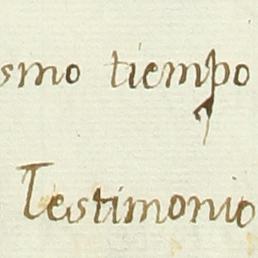 smo tiempo
Testimonio